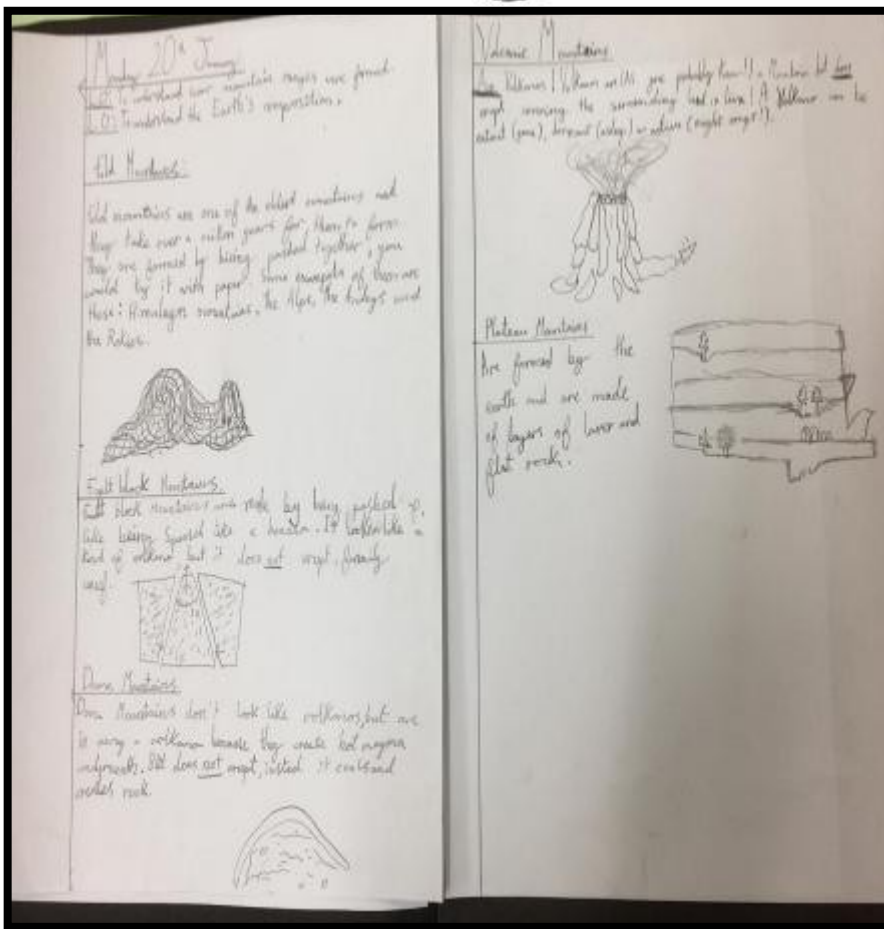 Monday 20th January
L.O: To understand how mountain ranges are formed.
L.O: To understand the Earth's composition.
Fold Mountains
Fold mountains are one of the oldest mountains and
they take over a million years for them to form.
They are formed by being pushed together, you
could try it with paper. Some examples of them are
these: Himalayas mountains, the Alps, the and
the Rokies.
Fault block Mountains
Fault block mountains are made by being pushed up,
like being like a . It looks like a
kind of volcano but it does not erupt,
Dome Mountains
Dome Mountains don't look like volkanos, but are
in away a volkano because they create hot magma
. Still does not erupt, insted it cools and
makes rock.
Volcanic Mountains
Are Volkanos! Volkano (as you probably know!) a Mountain but does
erupt covering the surrounding land in lava! A Volkano can be
extinct (gone), dormant (asleep) or active (might erupt!).
Plateau Mountains
Are formed by the
earth and are made
of layers of laver and
flat rock.